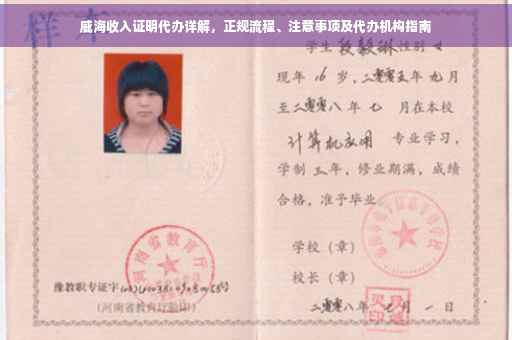 威海收入证明代办详解，正规流程、注意事项及代办机构指南
样本
学生段毅琳性别女
现年16岁，二零零五年九月
至二零零八年七月在本校
计算机应用 专业学习，
学制三年，修业期满，成绩
合格，准予毕业。
学校（章）
校长（章）
二零零八年七月一日
河南省教育厅
豫教职专证字
（河南省教育厅验印）